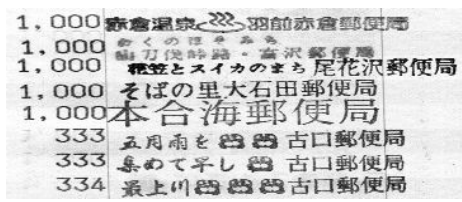 1,000 赤倉温泉♨羽前赤倉郵便局
1,000 おくのほそみち
山刀伐峠路・富沢郵便局
1,000 花笠とスイカのまち 尾花沢郵便局
1,000 そばの里大石田郵便局
1,000 本合海郵便局
333 五月雨を 古口郵便局
333 集めて早し 古口郵便局
334 最上川 古口郵便局